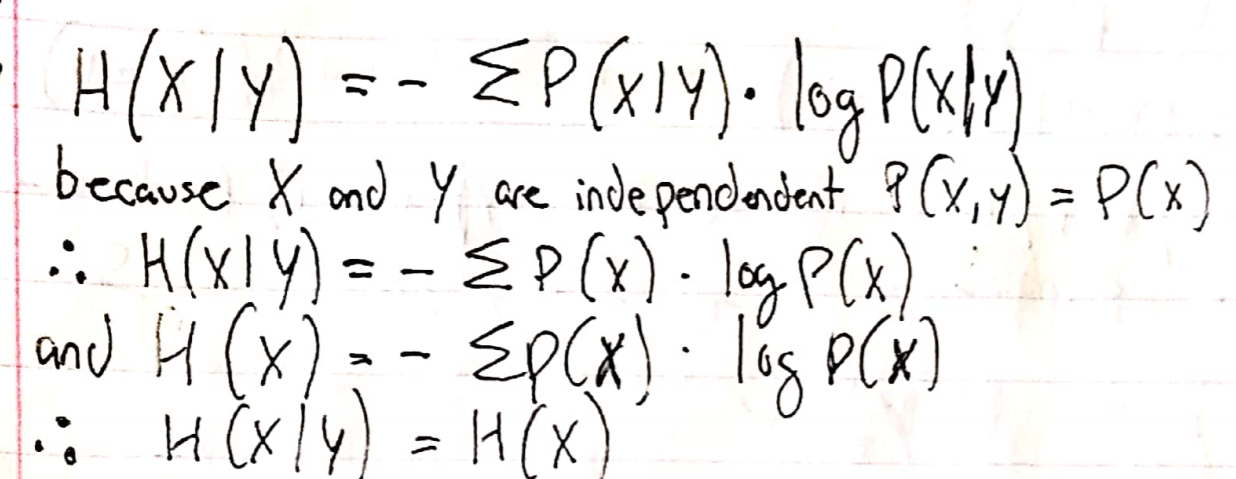 H(X|Y) = - ΣP(X|Y)· log P(X|Y)
because X and Y are independendent P(X,Y) = P(X)
∴ H(X|Y) = - ΣP(X) · log P(X)
and H(X) = - ΣP(X) · log P(X)
∴ H(X|Y) = H(X)